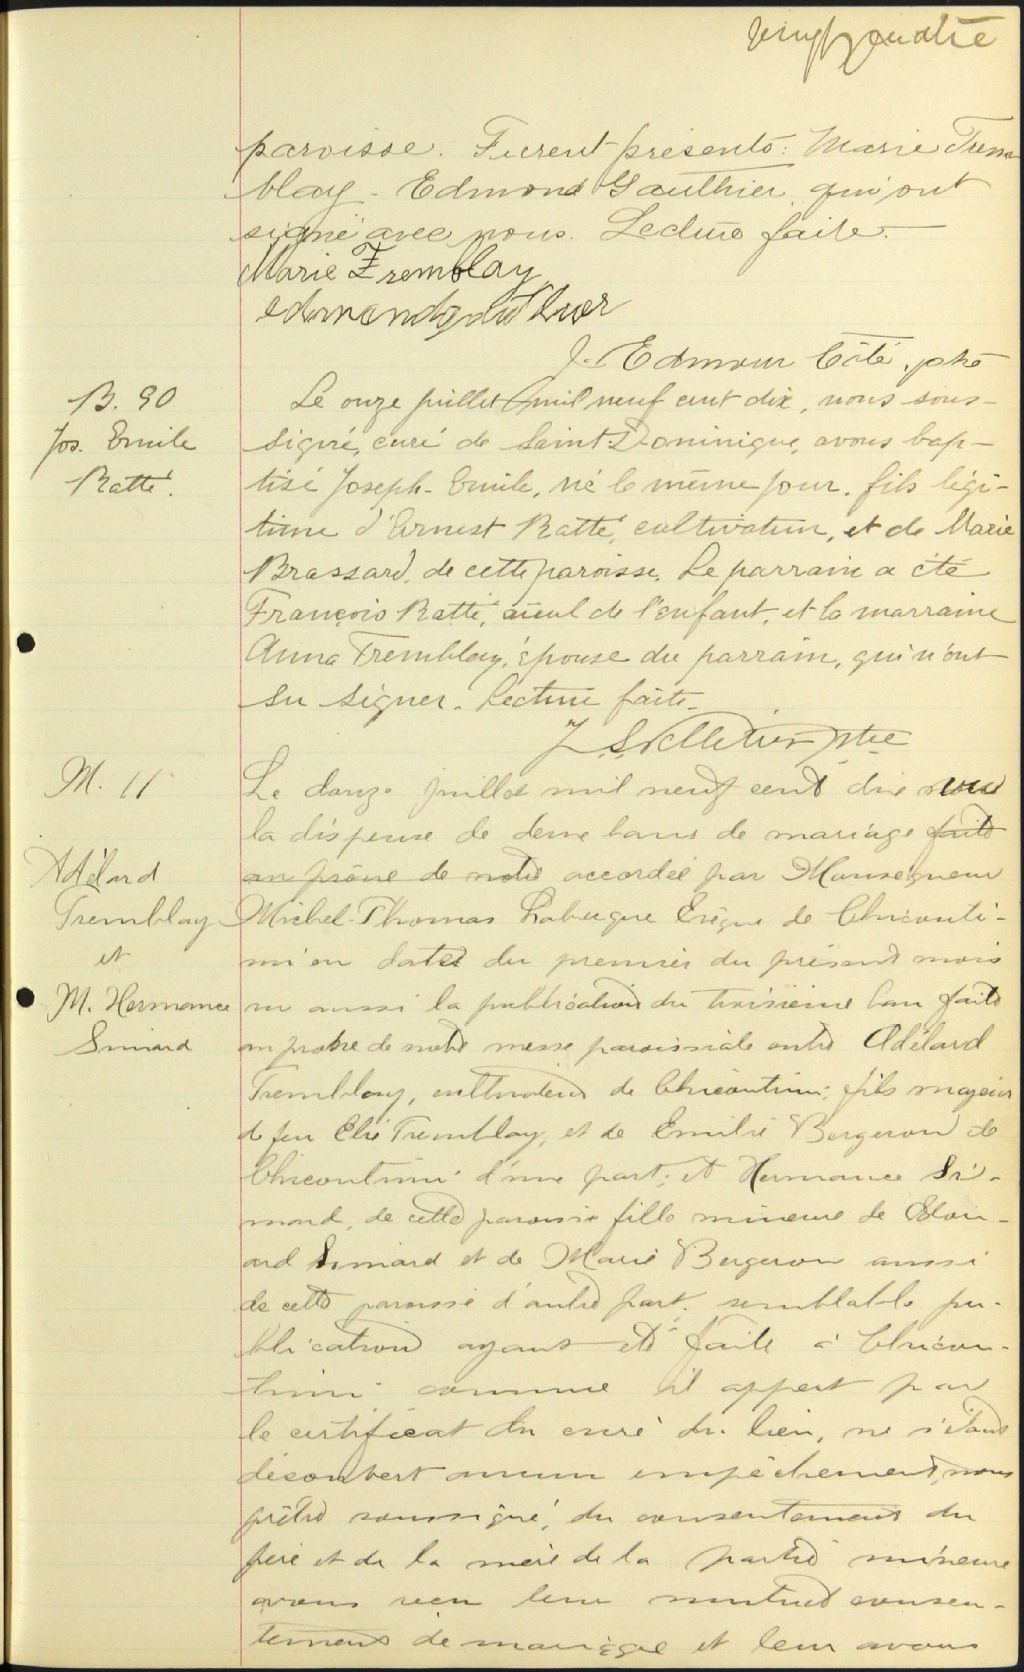 vingt quatre
paroisse. Furent présents: Marie Trem
blay - Edmond Gauthier qui ont
signé avec nous. Lecture faite.
Marie Tremblay
edmond gauthier
J. Edmour Côté, ptre
B. 90
Jos. Emile
Ratté.
Le onze juillet mil neuf cent dix, nous sous-
signé, curé de Saint Dominique, avons bap-
tisé Joseph-Emile, né le même jour, fils légi-
time d'Ernest Ratté, cultivateur, et de Marie
Brassard, de cette paroisse. Le parrain a été
François Ratté, aieul de l'enfant, et la marraine
Anna Tremblay, épouse du parrain, qui n'ont
su signer. Lecture faite.
J. S. Pelletier ptre
M. 11
Adélard
Tremblay
et
M. Hermance
Simard
Le douze juillet mil neuf cent dix vu
la dispense de deux bans de mariage faite
au prône de notre accordée par Monseigneur
Michel-Thomas Labrecque Evêque de Chicouti-
mi en date du premier du présent mois
vu aussi la publication du troisième ban faite
au prône de notre messe paroissiale entre Adélard
Tremblay, cultivateur de Chicoutimi, fils majeur
de feu Elie Tremblay, et de Emilie Bergeron de
Chicoutimi d'une part; et Hermance Si-
mard, de cette paroisse fille mineure de Edou-
ard Simard et de Marie Bergeron aussi
de cette paroisse d'autre part. semblable pu-
blication ayant été faite à Chicou-
timi comme il appert par
le certificat du curé du lieu, ne s'étant
découvert aucun empêchement, nous
prêtre soussigné, du consentement du
père et de la mère de la partie mineure
avons reçu leur mutuel consen-
tement de mariage et leur avons